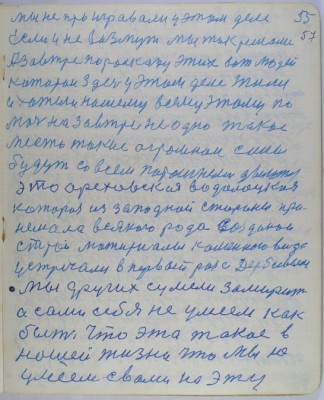 55
мы не проигравали у этом деле 57
Если не возмут мы так решали
А завтре пораскажу этих вот людей
которои здеч у этом деле жили
и хотели нашему всему этому по
моч на завтрi не одно такое
месть такие огромном силы
будут со всем
это ореховская водолоцкая
которая из западной стороны при
немала всякого рода создоной
строй материали каменного виде
устречали в первый раз с Дербеевым
• мы других сумели замирить
а сами себя не умеем как
быть. Что эта такое в
нашей жизни что мы ю
умеем свами на эту